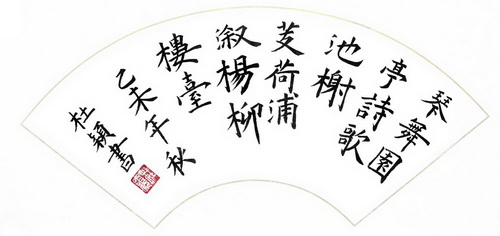 琴舞園
亭詩歌
池榭
芰荷浦
溆楊柳
樓臺
乙未年秋
杜穎書